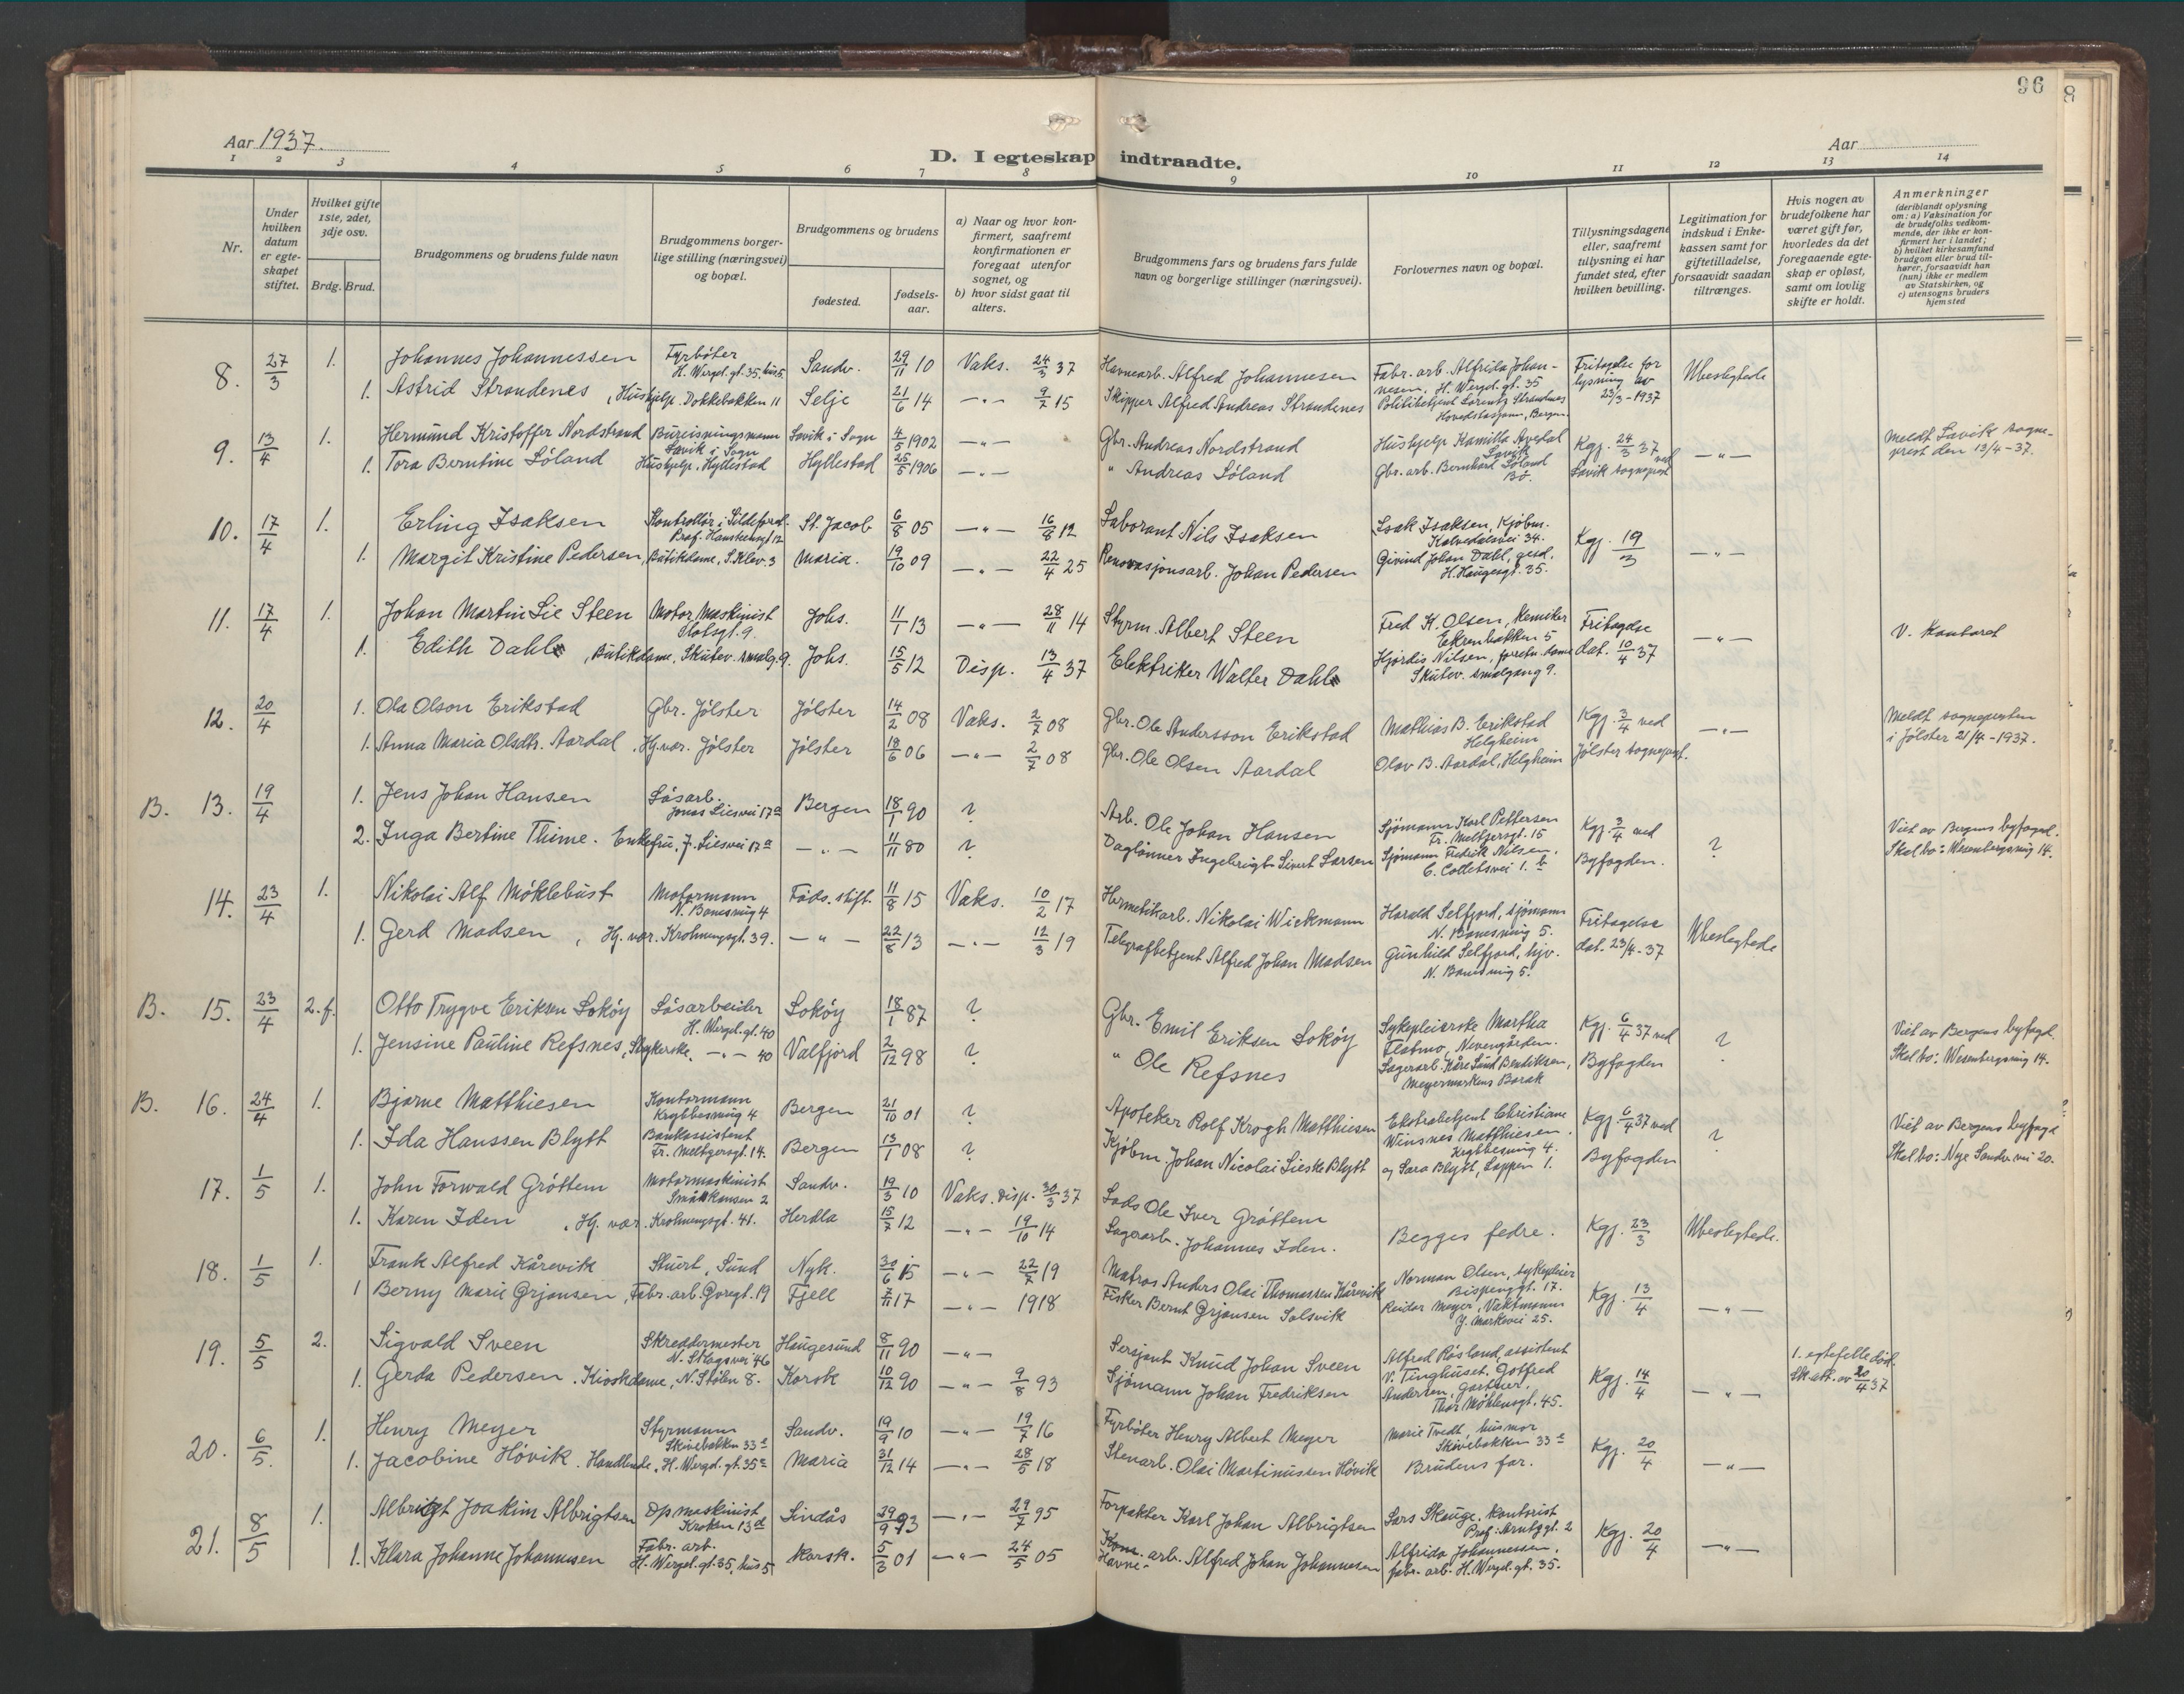 96
Aar 1937.
Aar
D. I egteskap indtraadte.
1 2 3 4 5 6 7 8 9 10 11 12 13 14
Nr.
Under hvilken datum er egteskapet stiftet.
Hvilket gifte 1ste, 2det, 3dje osv.
Brdg. Brud.
Brudgommens og brudens fulde navn
Brudgommens borgerlige stilling (næringsvei) og bopæl.
Brudgommens og brudens
fødested.
fødselsaar.
a) Naar og hvor konfirmert, saafremt konfirmationen er foregaat utenfor sognet, og
b) hvor sidst gaat til alters.
Brudgommens fars og brudens fars fulde navn og borgerlige stillinger (næringsvei).
Forlovernes navn og bopæl.
Tillysningsdagene eller, saafremt tillysning ei har fundet sted, efter hvilken bevilling.
Legitimation for indskud i Enkekassen samt for giftetilladelse, forsaavidt saadan tiltrænges.
Hvis nogen av brudefolkene har været gift før, hvorledes da det foregaaende egteskap er opløst, samt om lovlig skifte er holdt.
Anmerkninger
(deriblandt oplysning om: a) Vaksination for de brudefolks vedkommende, der ikke er konfirmert her i landet; b) hvilket kirkesamfund brudgom eller brud tilhører, forsaavidt han (hun) ikke er medlem av Statskirken, og c) utensogns bruders hjemsted
8. 27/3 1. Johannes Johannessen Fyrbøter H. Wergel. gt. 35, hus 5 Sandv. 29/11 10 Vaks. 24/3 37 Havnearb. Alfred Johannesen Fabr. arb. Alfrida Johannesen, H. Wergel. gt. 35 Fritagelse for lysning av 23/3-1937 Ubeslegtede
1. Astrid Strandenes, Hushjelp. Dokkebakken 11 Selje 21/6 14 —"— 9/7 15 Skipper Alfred Andreas Strandenes Politibetjent Lorentz Strandenes Hovedstasjonen, Bergen
9. 13/4 1. Hermund Kristoffer Nordstrand Bureisningsmann Lavik i Sogn Lavik i Sogn 4/5 1902 —"— Gbr. Andreas Nordstrand Hushjelp Kamilla Avedal Lavik Kgj. 24/3 37 ved Lavik sogneprest —"— Meldt Lavik sogneprest den 13/4-37.
1. Tora Berntine Søland Hushjelp, Hyllestad Hyllestad 25/5 1906 —"— " Andreas Søland Gbr. arb. Bernhard Søland Bø.
10. 17/4 1. Erling Isaksen Kontrollør i Sildeford. Prof. Hansteensgt 12 St. Jacob 6/8 05 —"— 16/8 12 Laborant Nils Isaksen Isak Isaksen, Kjøbm. Kalvedalsvei 34. Kgj. 19/3 —"—
1. Margit Kristine Pedersen, Butikdame, S. Klev. 3 Maria. 19/10 09 —"— 22/4 25 Renovasjonsarb. Johan Pedersen Eivind Johan Dahl, gesd. H. Haugesgt. 35.
11. 17/4 1. Johan Martin Lie Steen Motor Maskinist Slotsgt. 9. Johs. 11/1 13 —"— 28/11 14 Styrm. Albert Steen Fred K. Olsen, kemiker Ekrenbakken 5 Fritagelse dat. 10/4 37 —"— V. Kontoret
1. Edith Dahl, Butikdame, Skutev. smalg. 9. Johs. 15/5 12 Disp. 13/4 37 Elektriker Walter Dahl Hjørdis Nilsen, forretn. dame Skutev. smalgang 9.
12. 20/4 1. Ola Olson Erikstad Gbr. Jølster Jølster 14/2 08 Vaks. 2/7 08 Gbr. Ole Andersson Erikstad Mathias B. Erikstad Helgheim Kgj. 3/4 ved Jølster sogneprst. —"— Meldt sognepresten i Jølster 21/4-1937.
1. Anna Maria Olsdtr. Aardal, Hj. vær. Jølster Jølster 18/6 06 —"— 2/7 08 Gbr. Ole Olsen Aardal Olav B. Aardal, Helgheim
B. 13. 19/4 1. Jens Johan Hansen Løsarb. Jonas Liesvei 17a Bergen 18/1 90 ? Arb. Ole Johan Hansen Sjømann Karl Pettersen Fr. Meltzersgt. 15 Kgj. 3/4 ved Byfogden. ? Viet av Bergens byfogd. Skal bo: Wesenbergsmug 14.
2. Inga Bertine Thime. Enkefru, J. Liesvei 17a —"— 11/11 80 ? Daglønner Ingebrigt Sivert Larsen Sjømann Fredrik Nilsen, C. Colletsvei 1. b
14. 23/4 1. Nikolai Alf Møklebust Motormann N. Banesmug 4 Føds. stift. 11/8 15 Vaks. 10/2 17 Hermetikarb. Nikolai Wickmann Harald Selfjord, sjømann N. Banesmug 5. Fritagelse dat. 23/4-37 Ubeslegtede
1. Gerd Madsen, Hj. vær. Krohnengsgt. 39. —"— 22/8 13 —"— 12/3 19 Telegrafbetjent Alfred Johan Madsen Gunhild Selfjord, hjv. N. Banesmug 5.
B. 15. 23/4 2. f. Otto Trygve Eriksen Sokøy Løsarbeider H. Wergel. gt. 40 Sokøy 18/1 87 ? Gbr. Emil Eriksen Sokøy Sykepleierske Martha Flatmo, Nevengården. Kgj. 6/4 37 ved Byfogden ? Viet av Bergens byfogd. Skal bo: Wesenbergsmug 14.
1. Jensine Pauline Refsnes, Strykerske. —"— 40 Valfjord 2/12 98 ? " Ole Refsnes Lagerarb. Kåre Lund Bendiksen, Meyermarkens Barak
B. 16. 24/4 1. Bjarne Matthiesen Kontormann Krybbesmug 4 Bergen 21/10 01 ? Apoteker Rolf Krogh Matthiesen Ekstrabetjent Christiane Winsnes Matthiesen. Krybbesmug 4. Kgj. 6/4 37 ved Byfogden ? Viet av Bergens byfogd Skal bo: Nye Sandv. vei 20.
1. Ida Hanssen Blytt Bankassistent Fr. Meltzersgt. 14. Bergen 13/1 08 ? Kjøbm. Johan Nicolai Lieske Blytt og Sara Blytt, Lappen 1.
17. 1/5 1. John Torwald Grøttem Motormaskinist Småskansen 2 Sandv. 19/3 10 Vaks. Disp. 30/3 37 Lods Ole Iver Grøttem Begges fedre. Kgj. 23/3 Ubeslegtede.
1. Karen Iden, Hj. vær. Krohnengsgt. 41. Herdla 15/7 12 —"— 19/10 14 Lagerarb. Johannes Iden.
18. 1/5 1. Frank Alfred Kårevik Stuert, Sund Nyk. 30/6 15 —"— 22/7 19 Matros Anders Olai Thomassen Kårevik Norman Olsen, sykepleier Bispenggt. 17. Kgj. 13/4 —"—
1 Berny Marie Grjonsen, Fabr. arb. Øvregt. 19 Fjell 7/11 17 —"— 1918 Fisker Bernt Grjonsen Solsvik Reidar Meyer, Vaktmann Y. Markevei 25.
19. 5/5 2. Sigvald Sveen Skreddermester N. Skagsvei 46 Haugesund 8/11 90 —"— Sersjant Knud Johan Sveen Alfred Røsland, assistent V. Tinghuset. Gotfred Kgj. 14/4 —"— 1. egtefelle død. Sk. att. av 20/4 37
1. Gerda Pedersen. Kioskdame, N. Stølen 8. Korsk 10/12 90 —"— 9/8 93 Sjømann Johan Fredriksen Andersen, gartner. Thor Møhlensgt. 45.
20. 6/5. 1. Henry Meyer Styrmann Skivebakken 33a Sandv. 19/9 10 —"— 19/7 16 Fyrbøter Henry Albert Meyer Marie Tvedt, husmor Skivebakken 33a Kgj. 20/4 —"—
1. Jacobine Høvik. Handlende, H. Wergel. gt. 35a Maria 31/12 14 —"— 28/5 18 Stenarb. Olai Martinussen Høvik Brudens far.
21. 8/5 1. Albrigt Joakim Albrigtsen Dp maskinist Kroken 13d Lindås 29/9 93 —"— 29/7 95 Forpakter Karl Johan Albrigtsen Lars Skauge, kontorist Prof. Arntzgt. 2 Kgj. 20/4 —"—
1. Klara Johanne Johannesen Fabr. arb. H. Wergel. gt. 35, hus 5 Korsk. 5/3 01 —"— 24/5 05 Havne-arb. Alfred Johan Johannesen Alfrida Johannessen, fabr. arb. H. Wergel. gt. 35.